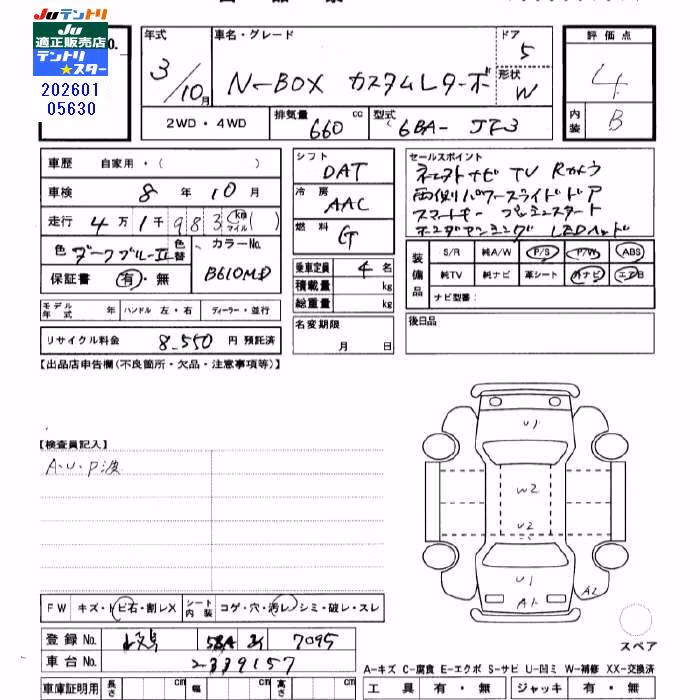 JUテントリ
JU
適正販売店
テントリ
★スター
202601
05630
年式
3/10月
車名・グレード
N-BOX カスタムLターボ
ドア
5
形状
W
評価点
4
内装
B
2WD・4WD
排気量
660 cc
型式
6BA-JF3
車歴 自家用・( )
車検 8年10月
走行 4万1千983 (km マイル)( )
色 ダークブルーII
色替
カラーNo.
B610MD
保証書 有・無
モデル年式 年 ハンドル 左・右 ディーラー・並行
リサイクル料金 8,550 円 預託済
シフト
DAT
冷房
AAC
燃料
G
乗車定員 4名
積載量 kg
総重量 kg
名変期限
月 日
セールスポイント
ネットナビ TV Rカメラ
両側パワースライドドア
スマートキー プッシュスタート
ホンダセンシング LEDヘッド
装備品
S/R 純A/W P/S P/W ABS
純TV 純ナビ 革シート 外ナビ エアB
ナビ型番:
後日品
【出品店申告欄(不良箇所・欠品・注意事項等)】
【検査員記入】
A・U・P波
U1
W2
U2
U1
A1
A2
スペア
FW キズ・トビ石・割レX シート内装 コゲ・穴・汚レ・シミ・破レ・スレ
登録No. 7095
車台No. 2339157
車庫証明用 長さ cm 幅 cm 高さ cm
A-キズ C-腐食 E-エクボ S-サビ U-凹ミ W-補修 XX-交換済
工具 有・無 ジャッキ 有・無